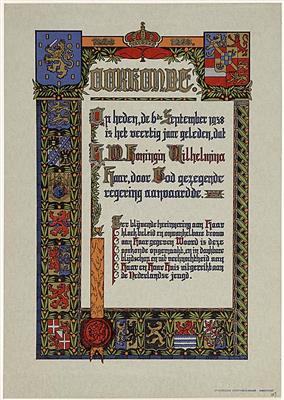 1898 1938.
OORKONDE.
Op heden, de 6de September 1938
is het veertig jaar geleden, dat
H.M. Koningin Wilhelmina
Haar, door God gezegende
regering aanvaardde.
Ter blijvende herinnering aan Haar
kloek beleid en onwankelbare trouw
aan Haar gegeven Woord is deze
oorkonde opgemaakt, en in dankbare
blijdschap en uit verknochtheid aan
Haar en Haar Huis uitgereikt aan
de Nederlandse jeugd.